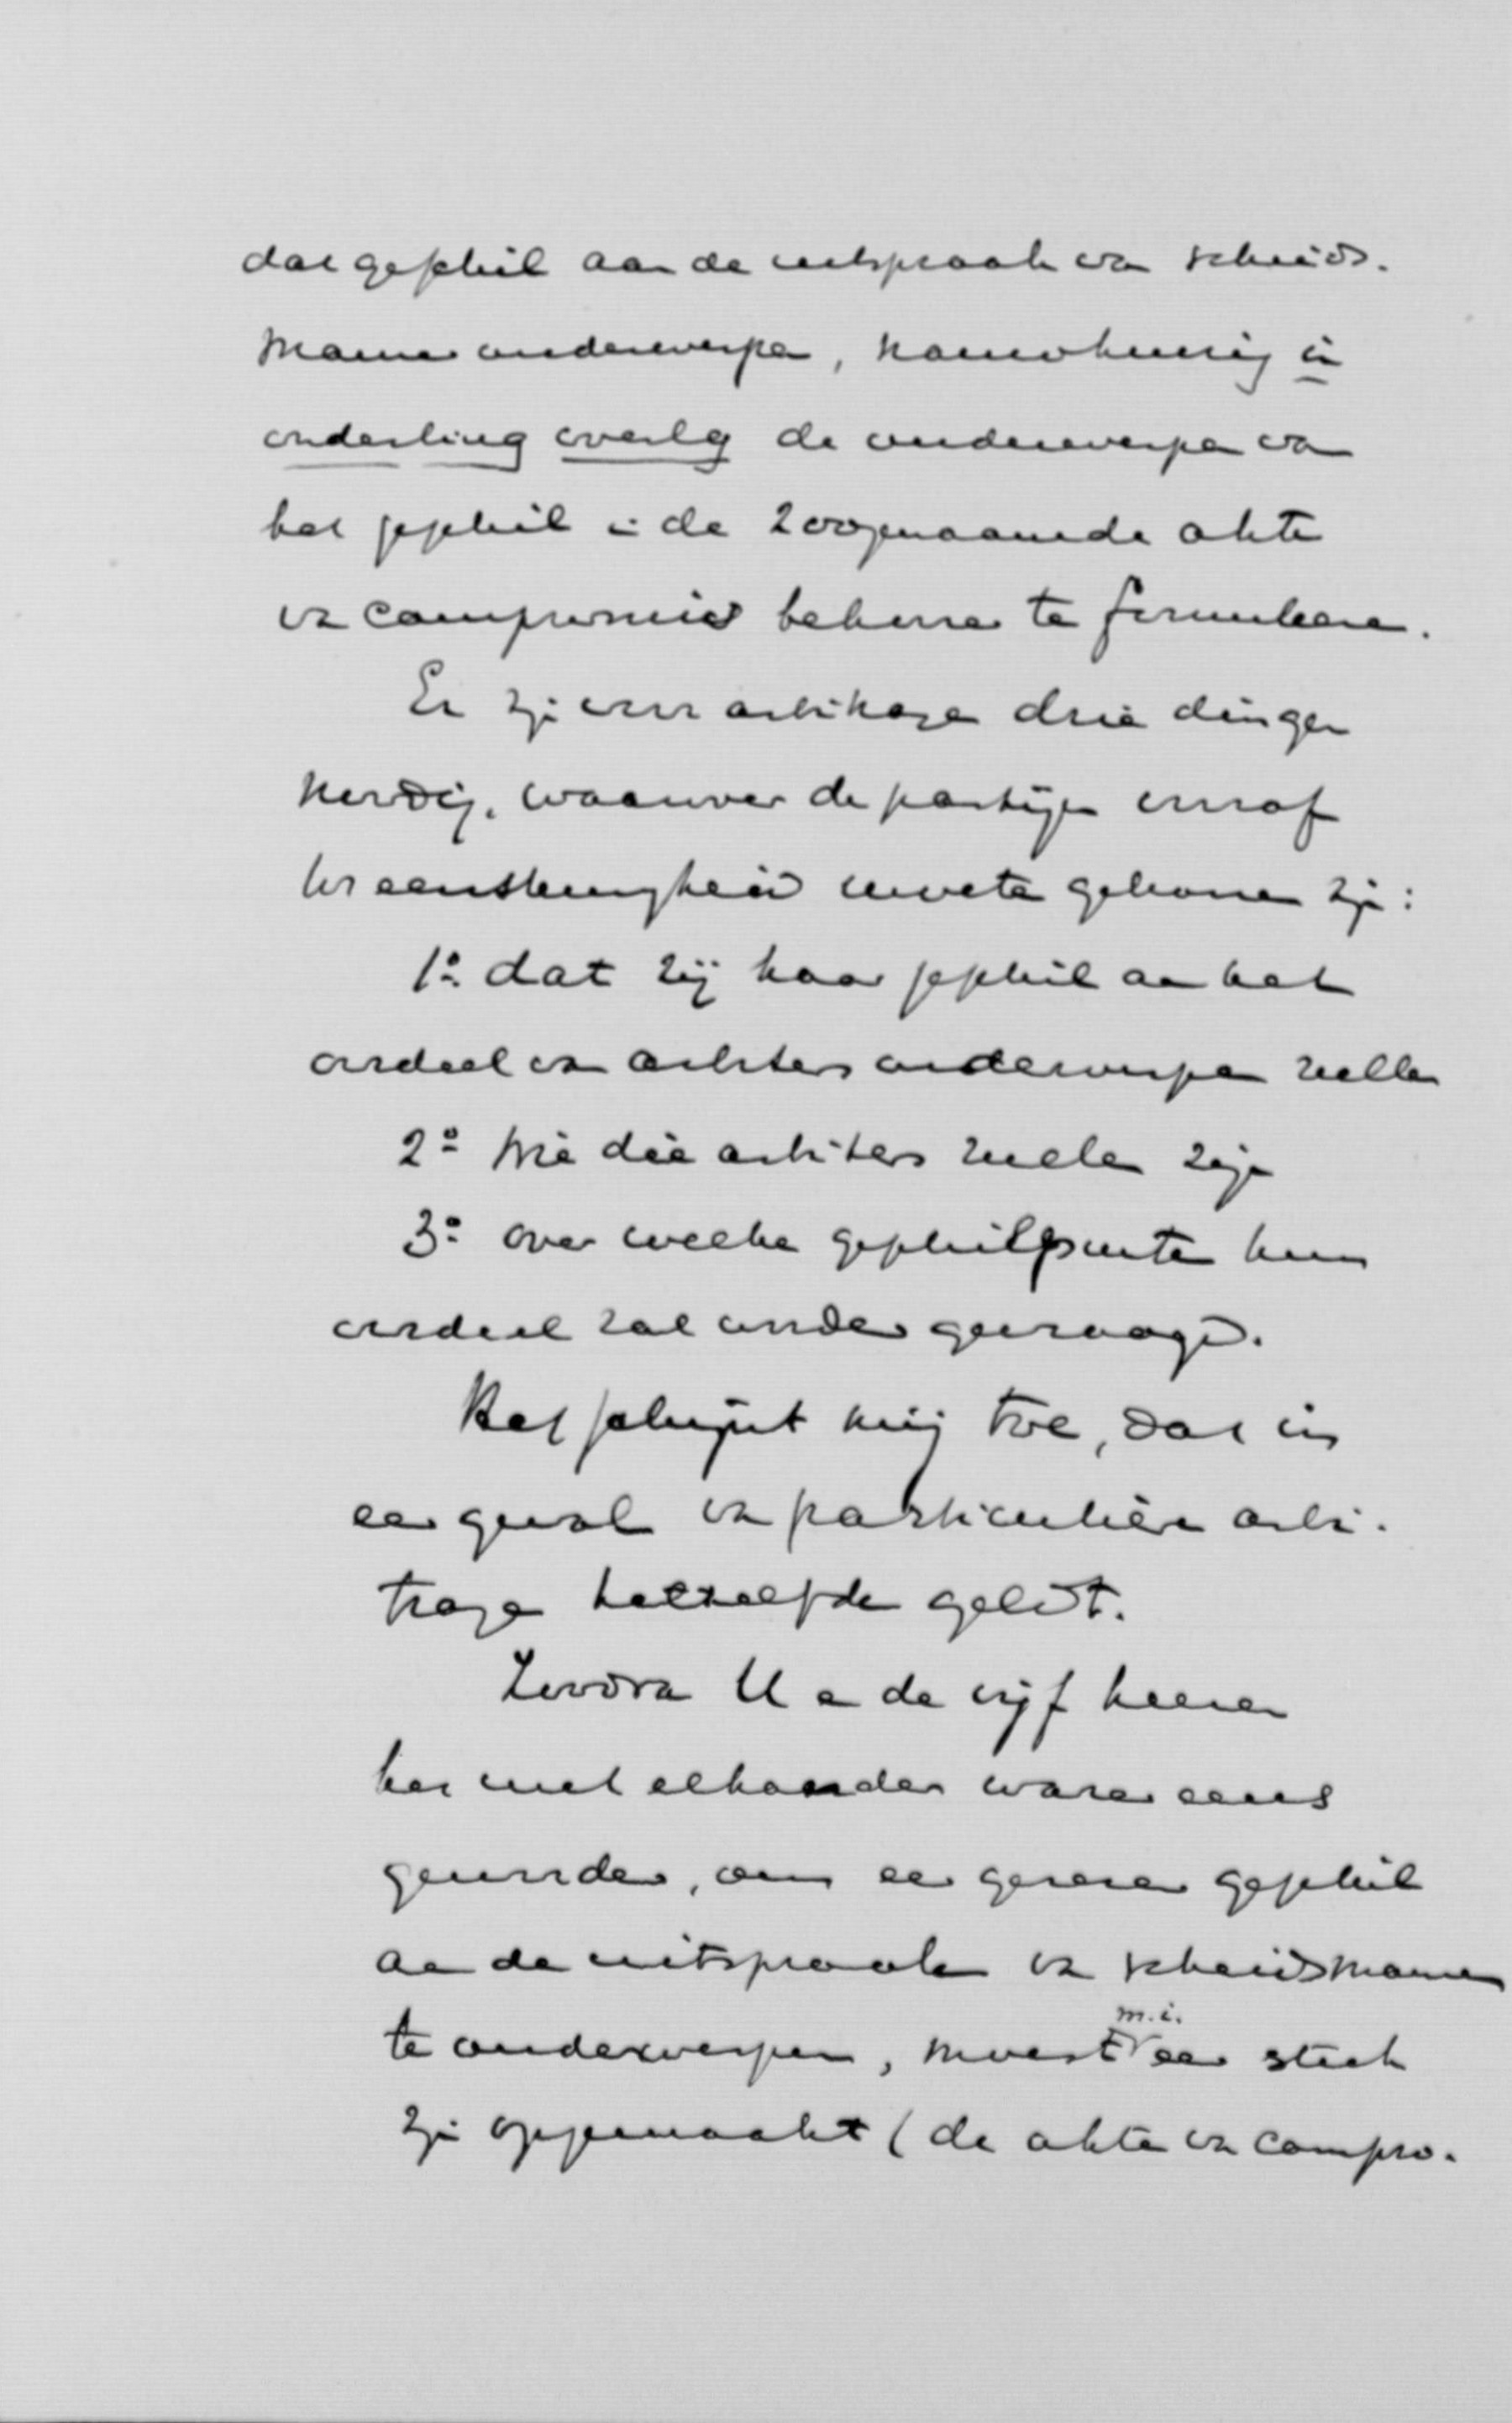 dat geschil aan de uitspraak van scheids-
mannen onderwerpen, nauwkeurig in
onderling overleg de onderwerpen van
het geschil in de zoogenaamde akte
van compromis behooren te formuleeren.
Er zijn voor arbitrage drie dingen
noodig, waarover de partijen vooraf
tot eenstemmigheid moeten gekomen zijn:
1º dat zij haar geschil aan het
oordeel van arbiters onderwerpen zullen
2º wie die arbiters zullen zijn
3º over welke geschilpunten hun
oordeel zal worden gevraagd.
Het schijnt mij toe, dat in
een geval van particuliere arbi-
trage hetzelfde geldt.
Zoodra U en de vijf heeren
het met elkander waren eens
geworden, om een gerezen geschil
aan de uitspraak van scheidsmannen
te onderwerpen, moest m.i. een stuk
zijn opgemaakt (de akte van compro-